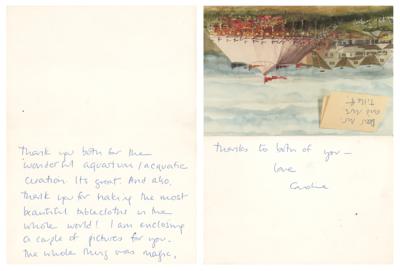 Thank you both for the
wonderful aquarium/aquatic
creation. Its great. And also,
thank you for making the most
beautiful tablecloths in the
whole world! I am enclosing
a couple of pictures for you.
The whole thing was magic.
Dear Mr
and Mrs
thanks to both of you —
love